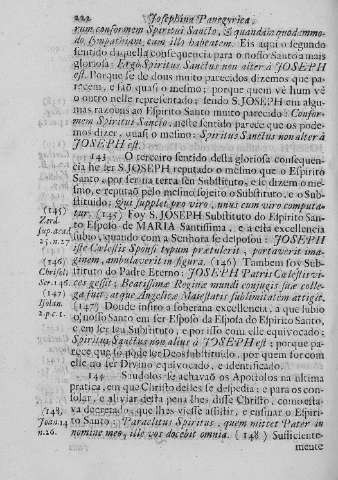 222 Josephina Panegyrica,
rum conformem Spiritui Sancto, & quandam quodammo-
do sympathiam cum illo habentem. Eis aqui o segundo
sentido daquella consequencia para o nosso Santo a mais
gloriosa: Ergò Spiritus Sanctus non alter à JOSEPH
est. Porque se de dous muito parecidos dizemos que pa-
recem, e saõ quasi o mesmo; porque quem vè hum vè
o outro nelle representado; sendo S. JOSEPH em algu-
mas razoens ao Espirito Santo muito parecido: Confor-
mem Spiritui Sancto, neste sentido parece que os pode-
mos dizer, quasi o mesmo: Spiritus Sanctus non alter à
JOSEPH est.
143 O terceiro sentido desta gloriosa consequen-
cia he ser S. JOSEPH reputado o mesmo que o Espirito
Santo, por ser na terra seu Substituto, e se dizem o mes-
mo, e reputaõ pelo mesmo sojeito o Substituto, e o Sub-
stituido: Qui supplet pro viro, unus cum viro computa-
(145) tur. (145) Foy S. JOSEPH Substituto do Espirito San-
to Esposo de MARIA Santissima, e a esta excellencia
subio, quando com a Senhora se desposou: JOSEPH
25. n. 27 iste Cælestis Sponsi typum prætulerit, portaverit ima-
(146) ginem, ambulaverit in figura. (146) Tambem foy Sub-
stituto do Padre Eterno: JOSEPH Patris Cælestis vi-
Ser. 146. ces gessit; Beatissimæ Reginæ mundi conjugis suæ colle-
(147) ga fuit, atque Angelicæ Maiestatis sublimitatem attigit.
(147) Donde infiro a soberana excellencia, a que subio
2. p. c. 1. o nosso Santo em ser Esposo da Esposa do Espirito Santo,
e em ser seu Substituto, e por isso com elle equivocado:
Spiritus Sanctus non alter à JOSEPH est; porque pa-
rece que só póde ser Deos substituido, por quem for com
elle no ser Divino equivocado, e identificado.
144 Saudosos se achavaõ os Apostolos na ultima
pratica, em que Christo delles se despedia; e para os con-
solar, e aliviar desta pena lhes disse Christo, como esta-
(148) va decretado, que lhes viesse assistir, e ensinar o Espiri-
Joan. 14 to Santo: Paraclitus Spiritus, quem mittet Pater in
n. 26. nomine meo, ille vos docebit omnia. (148) Sufficiente-
mente